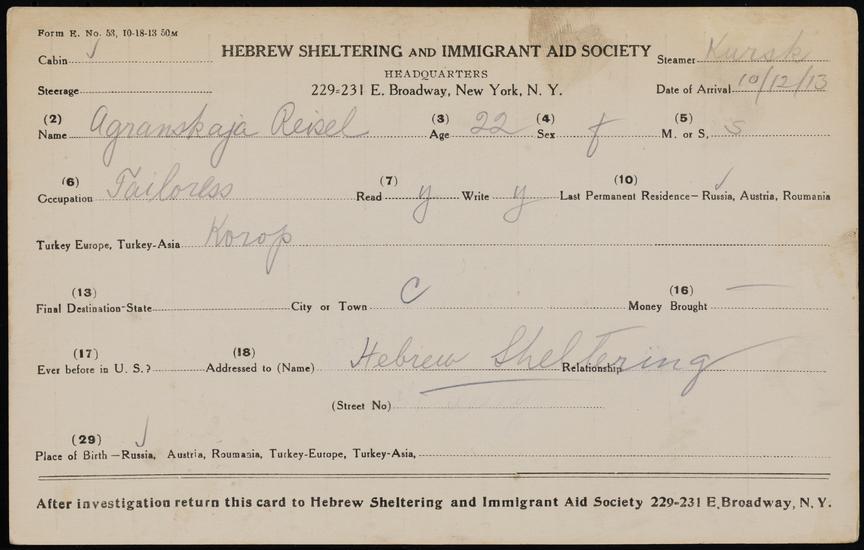 Form E. No. 53, 10-18-13 50M
HEBREW SHELTERING AND IMMIGRANT AID SOCIETY
HEADQUARTERS
229-231 E. Broadway, New York, N. Y.
Cabin ✓
Steerage
Steamer Kursk
Date of Arrival 10/12/13
(2) (3) (4) (5)
Name Agranskaja Reisel Age 22 Sex f M. or S. S
(6) (7) (10)
Occupation Tailoress Read y Write y Last Permanent Residence— Russia, Austria, Roumania
Turkey Europe, Turkey-Asia Korop
(13) (16)
Final Destination-State City or Town C Money Brought —
(17) (18)
Ever before in U. S.? Addressed to (Name) Hebrew Sheltering Relationship
(Street No)
(29)
Place of Birth —Russia, Austria, Roumania, Turkey-Europe, Turkey-Asia,
After investigation return this card to Hebrew Sheltering and Immigrant Aid Society 229-231 E. Broadway, N. Y.